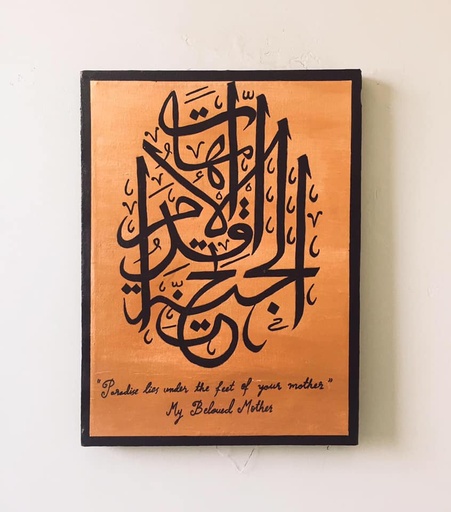 الجنة تحت اقدام الامهات
"Paradise lies under the feet of your mother"
My Beloved Mother